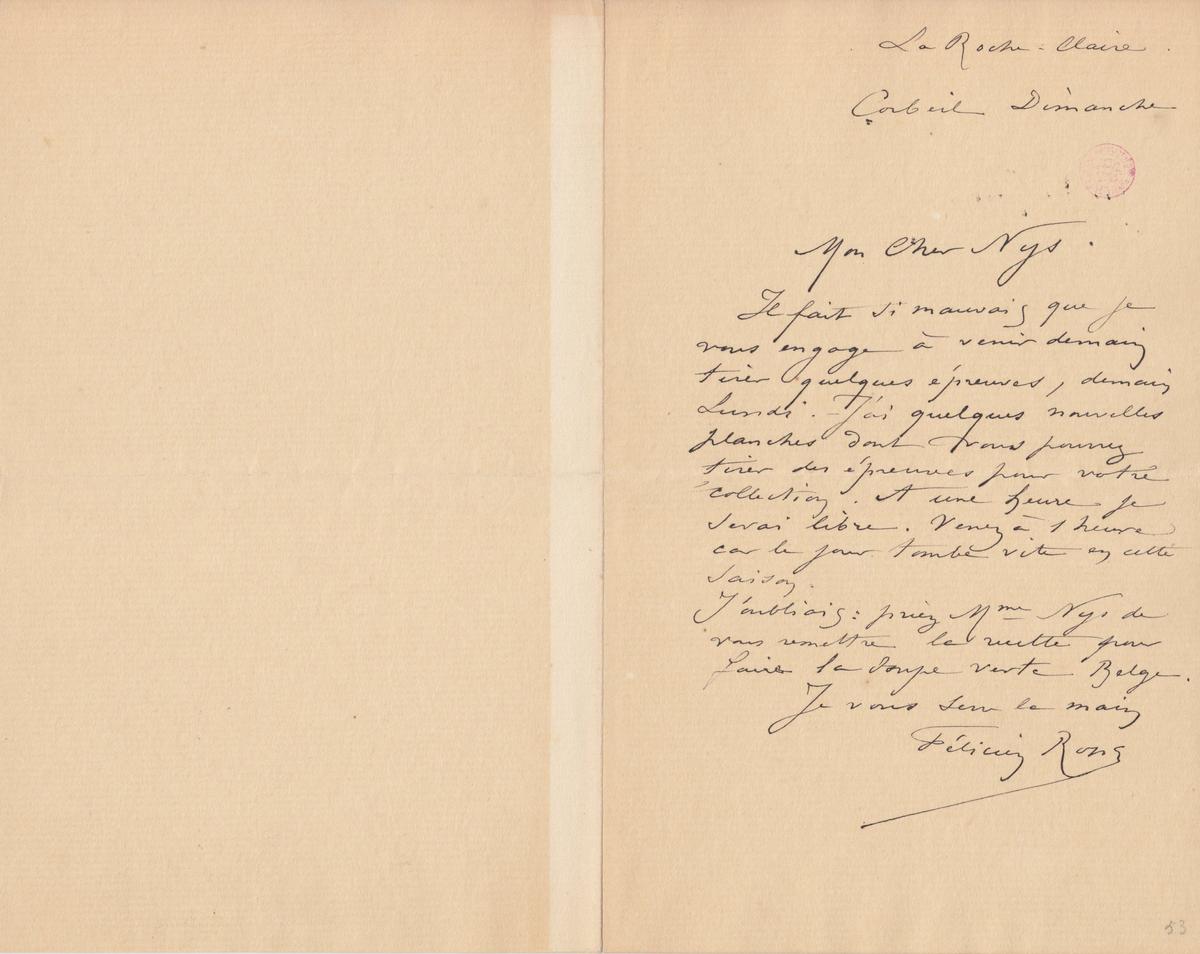 La Roche-Claire.
Corbeil Dimanche
Mon Cher Nys.
Il fait si mauvais que je
vous engage à venir demain
tirer quelques épreuves, demain
Lundi. - J'ai quelques nouvelles
planches dont vous pourrez
tirer des épreuves pour votre
collection. A une heure je
serai libre. Venez à 1 heure
car le jour tombe vite en cette
saison.
J'oubliais: priez Mme Nys de
vous remettre la recette pour
faire la soupe verte Belge.
Je vous serre la main
Félicien Rops
53